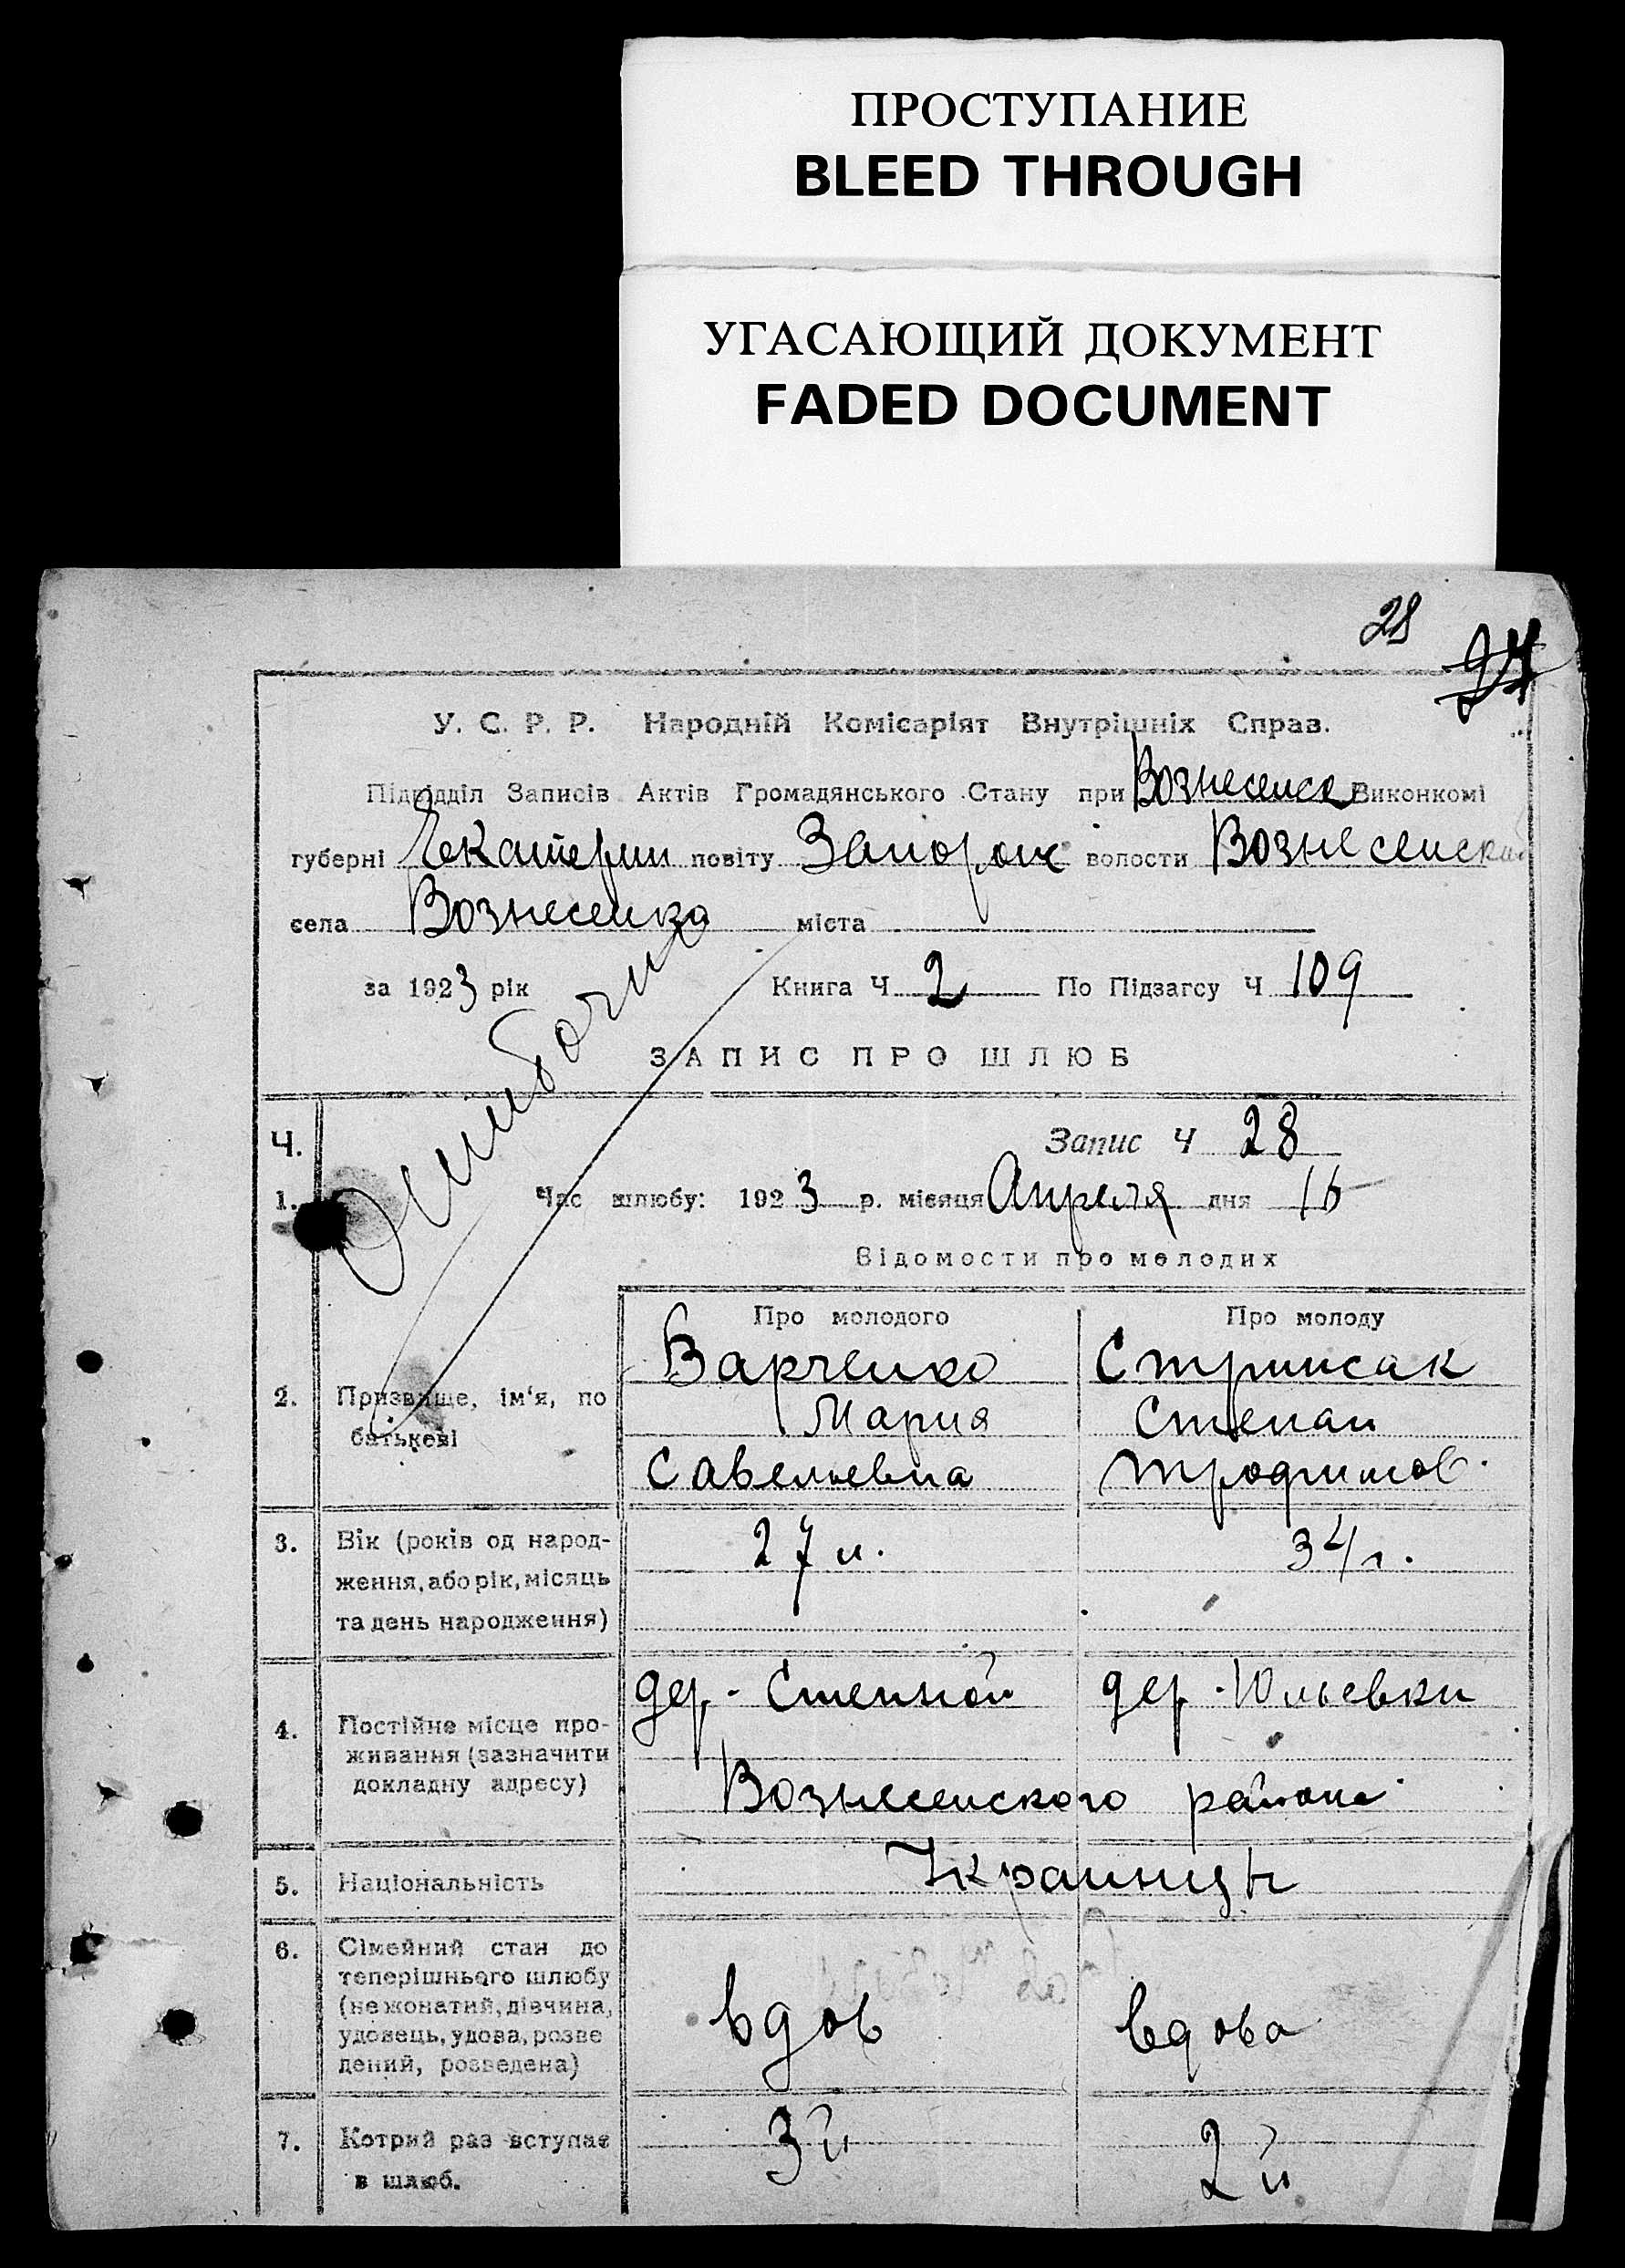 ПРОСТУПАНИЕ
BLEED THROUGH
УГАСАЮЩИЙ ДОКУМЕНТ
FADED DOCUMENT
28
24
У. С. Р. Р. Народній Комісаріят Внутрішніх Справ.
Підвідділ Записів Актів Громадянського Стану при Вознесенск Виконкомі
губерні Екатерин повіту Запорож волости Вознесенский
села Вознесенка міста
за 1923 рік Книга Ч 2 По Підзагсу Ч 109
Ошибочно
ЗАПИС ПРО ШЛЮБ
Ч. Запис Ч 28
1. Час шлюбу: 1923 р. місяця Апреля дня 16
Відомости про молодих
Про молодого Про молоду
2. Призвище, ім'я, по батькові
Варченко Стрписак
Мария Степан
Савельевна Трофимов.
3. Вік (років од народ-
ження, або рік, місяць
та день народження)
27 л. 34 г.
4. Постійне місце про-
живання (зазначити
докладну адресу)
дер. Степной дер. Юльевки
Вознесенского района
5. Національність Украинцы
6. Сімейний стан до
теперішнього шлюбу
(нежонатий, дівчина,
удовець, удова, розве
дений, розведена)
вдов вдова
7. Котрий раз вступає
в шлюб.
3й 2й